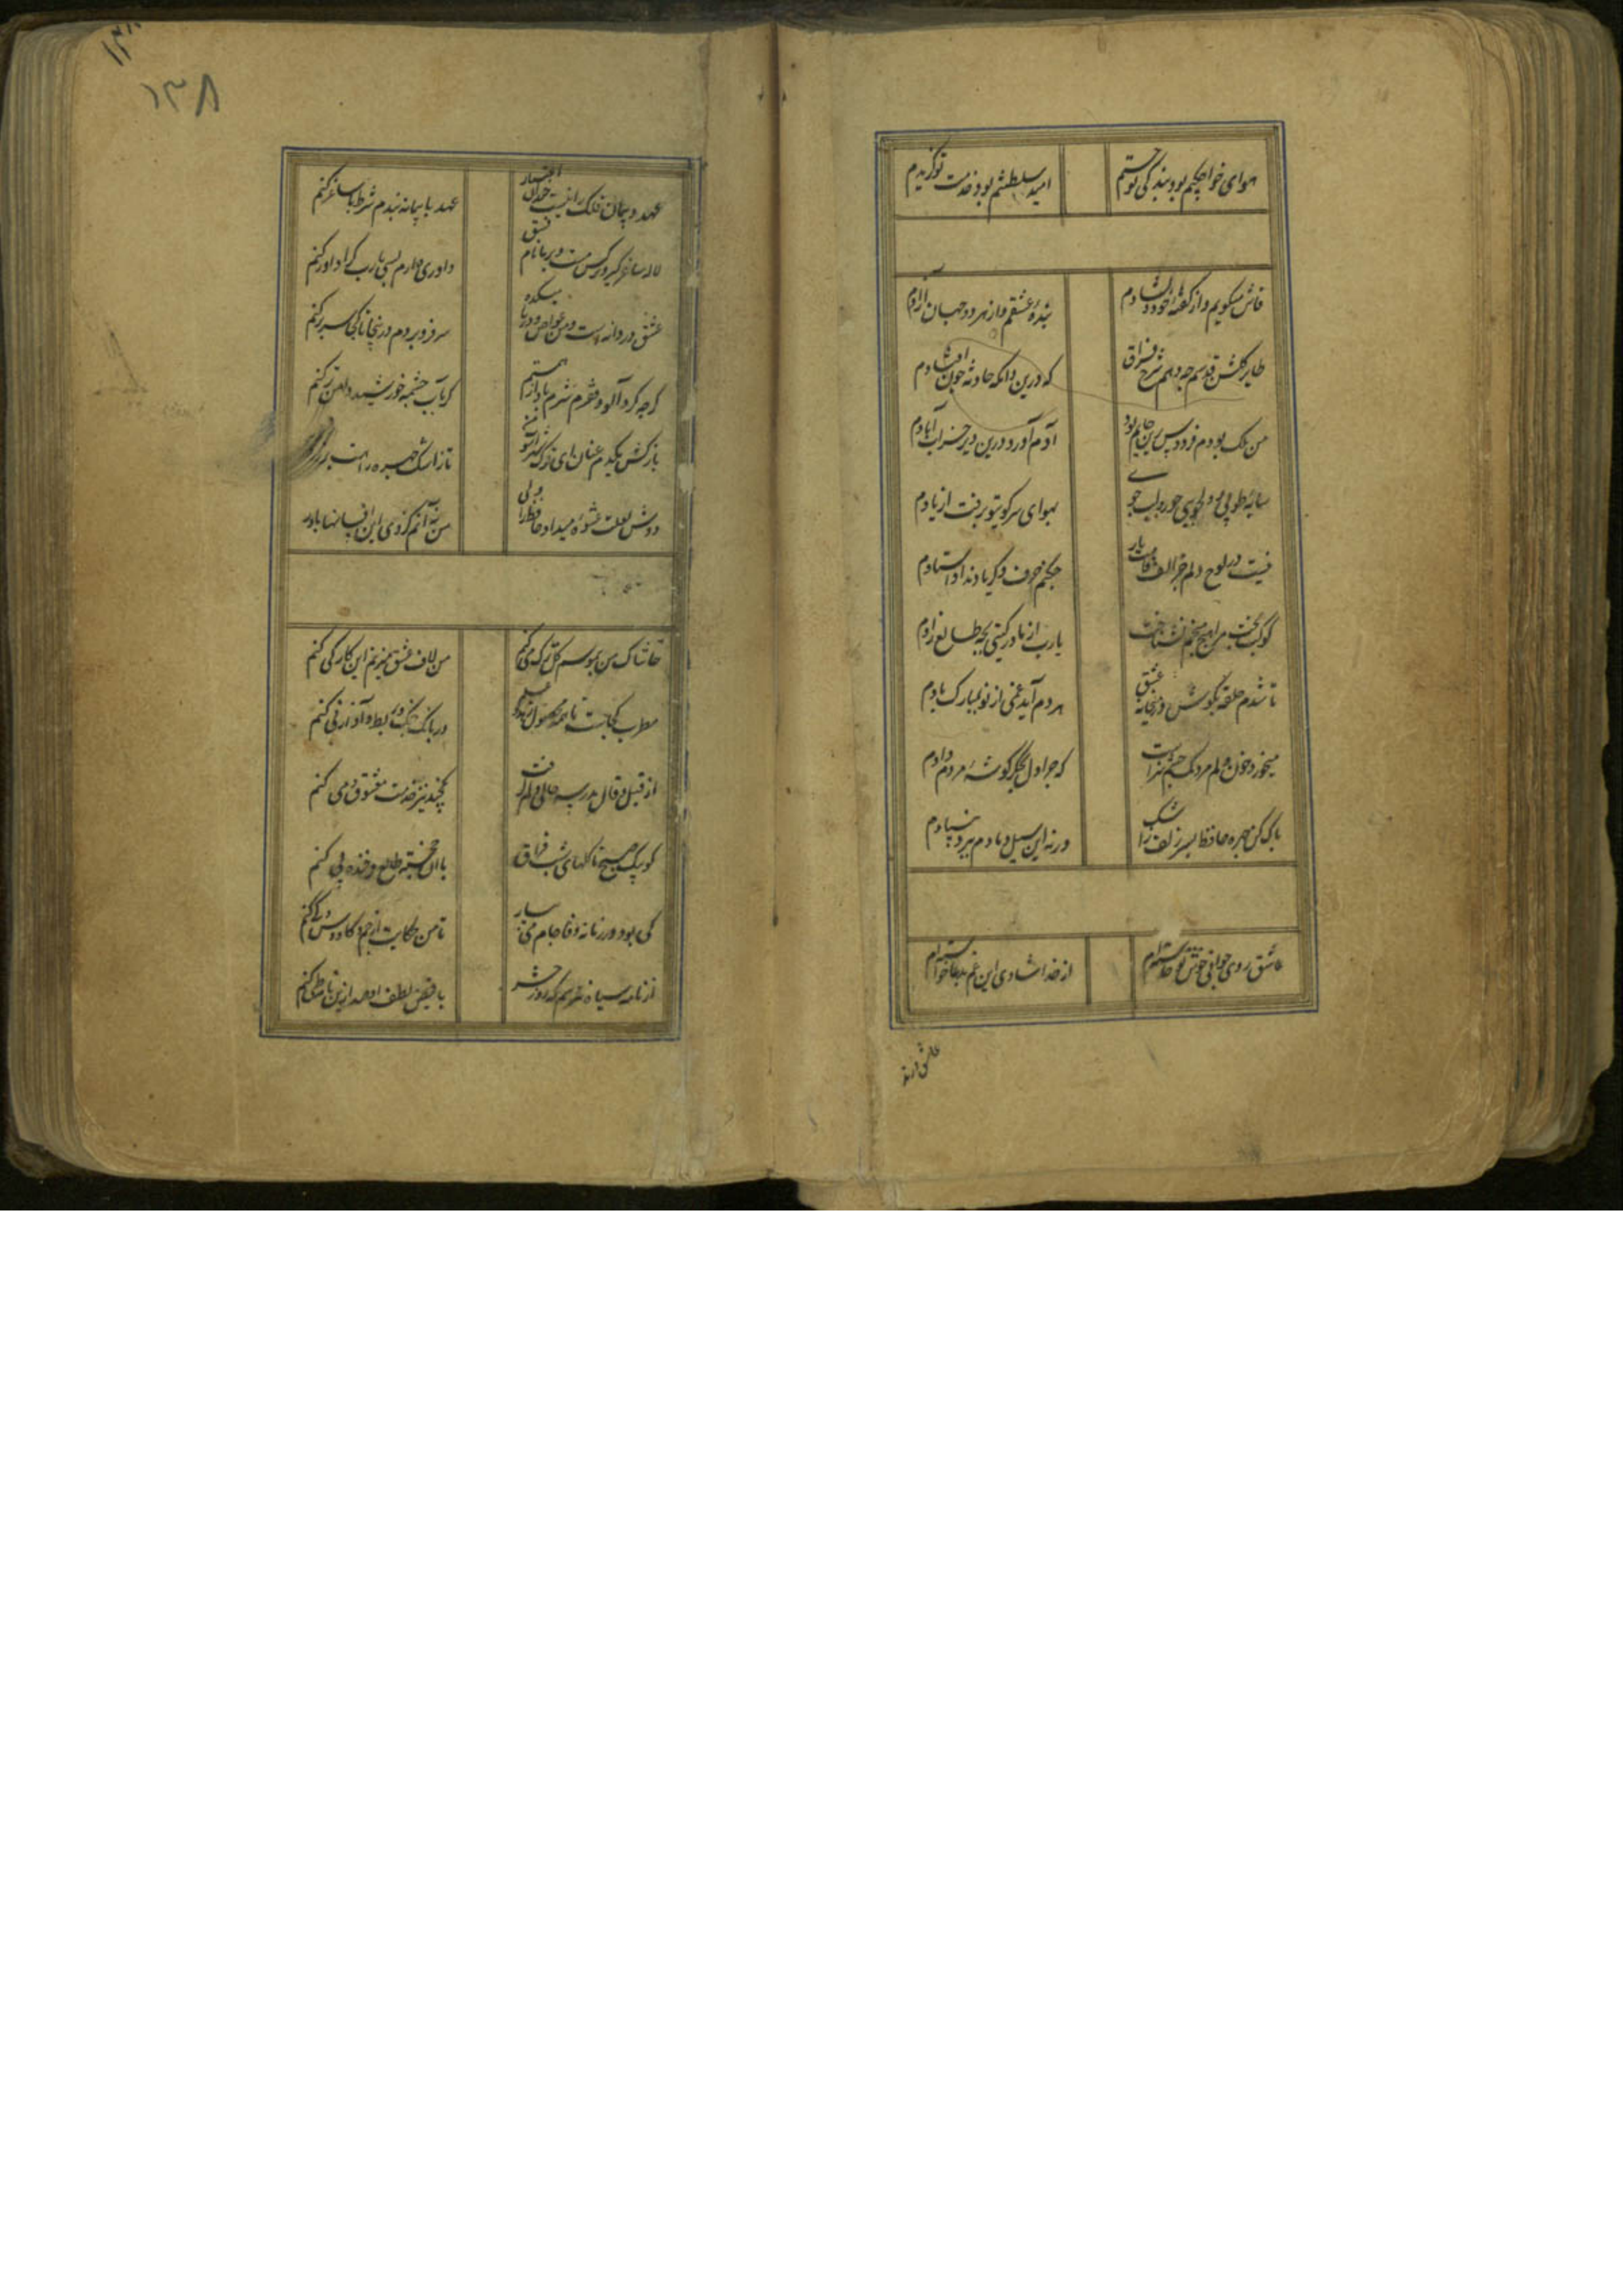 هوای خواجگیم بود بندگی تو جستم امید سلطنتم بود خدمت تو گزیدم
فاش میگویم و از گفتهٔ خود دلشادم بندهٔ عشقم و از هر دو جهان آزادم
طایر گلشن قدسم چه دهم شرح فراق که درین دامگه حادثه چون افتادم
من ملک بودم و فردوس برین جایم بود آدم آورد درین دیر خراب آبادم
سایهٔ طوبی و دلجویی حور و لب جوی بهوای سر کوی تو برفت از یادم
نیست در لوح دلم جز الف قامت یار چکنم حرف دگر یاد نداد استادم
کوکب بخت مرا هیچ منجم نشناخت یارب از مادر گیتی بچه طالع زادم
تا شدم حلقه بگوش در میخانهٔ عشق هر دم آید غمی از نو بمبارک بادم
میخورد خون دلم مردمک چشم سزاست که چرا دل بجگر گوشهٔ مردم دادم
پاک کن چهره حافظ بسر زلف ز اشک ورنه این سیل دمادم ببرد بنیادم
عاشق روی جوانی خوش نوخاسته‌ام از خدا شادی این غم بدعا خواسته‌ام
عاشق و رند
۱۳۸
۱۳۸
عهد و پیمان فلک را نیست چندان اعتبار عهد با پیمانه بندم شرط با ساغر کنم
لاله ساغر گیر و نرگس مست و بر ما نام فسق داوری دارم بسی یارب کرا داور کنم
عشق دردانه است و من غواص و دریا میکده سر فرو بردم درینجا تا کجا سر بر کنم
گرچه گرد آلود فقرم شرم باد از همتم گر بآب چشمه خورشید دامن تر کنم
باز کش یکدم عنان ای ترک شهر آشوب من تا ز اشک چهره راهت
دوش لعلت عشوهٔ میداد حافظ را ولی من نه آنم کز وی این افسانها باور
حاشا که من بموسم گل ترک می کنم من لاف عشق میزنم این کار کی کنم
مطرب کجاست تا همه محصول زهد و علم در بانگ چنگ و بربط و آواز نی کنم
از قیل و قال مدرسه حالی دلم گرفت یکچند نیز خدمت معشوق و می کنم
کو پیک صبح تا گلهای شب فراق با آن خجسته طالع فرخنده پی کنم
کی بود در زمانه وفا جام می بیار تا من حکایت از جم و کاووس و کی کنم
از نامه سیاه نترسم که روز حشر با فیض لطف او صد ازین نامه طی کنم